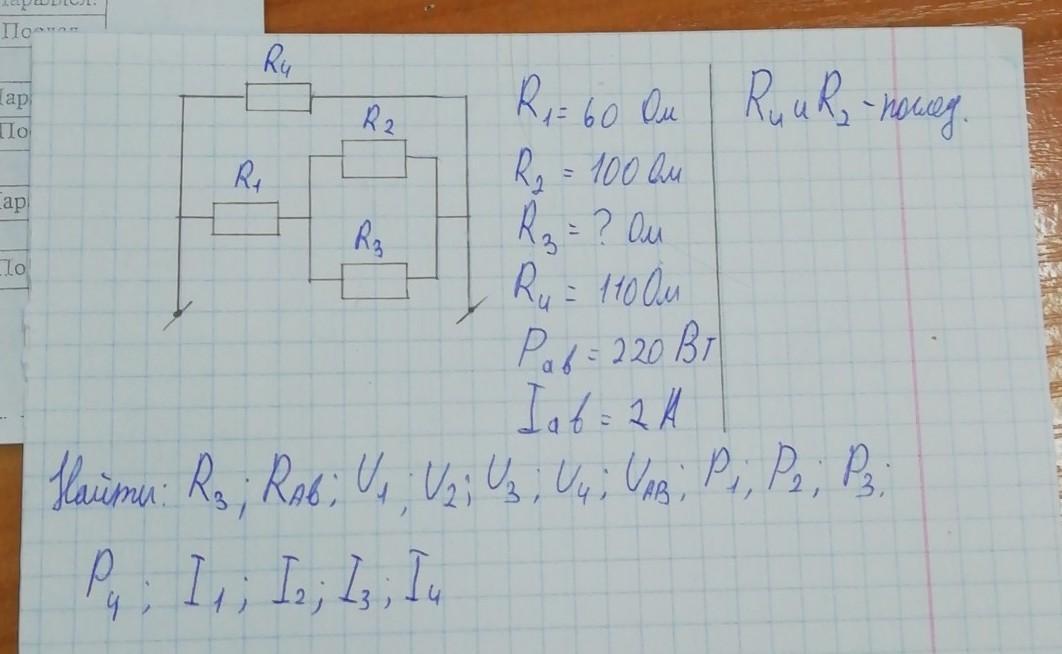 По
Пар
По
Пар
По
R4
R2
R1
R3
R1 = 60 Ом
R2 = 100 Ом
R3 = ? Ом
R4 = 110 Ом
Pав = 220 Вт
Iав = 2 А
R4 и R2 - послед.
Найти: R3; RАВ; U1; U2; U3; U4; UАВ; P1; P2; P3;
P4; I1; I2; I3; I4